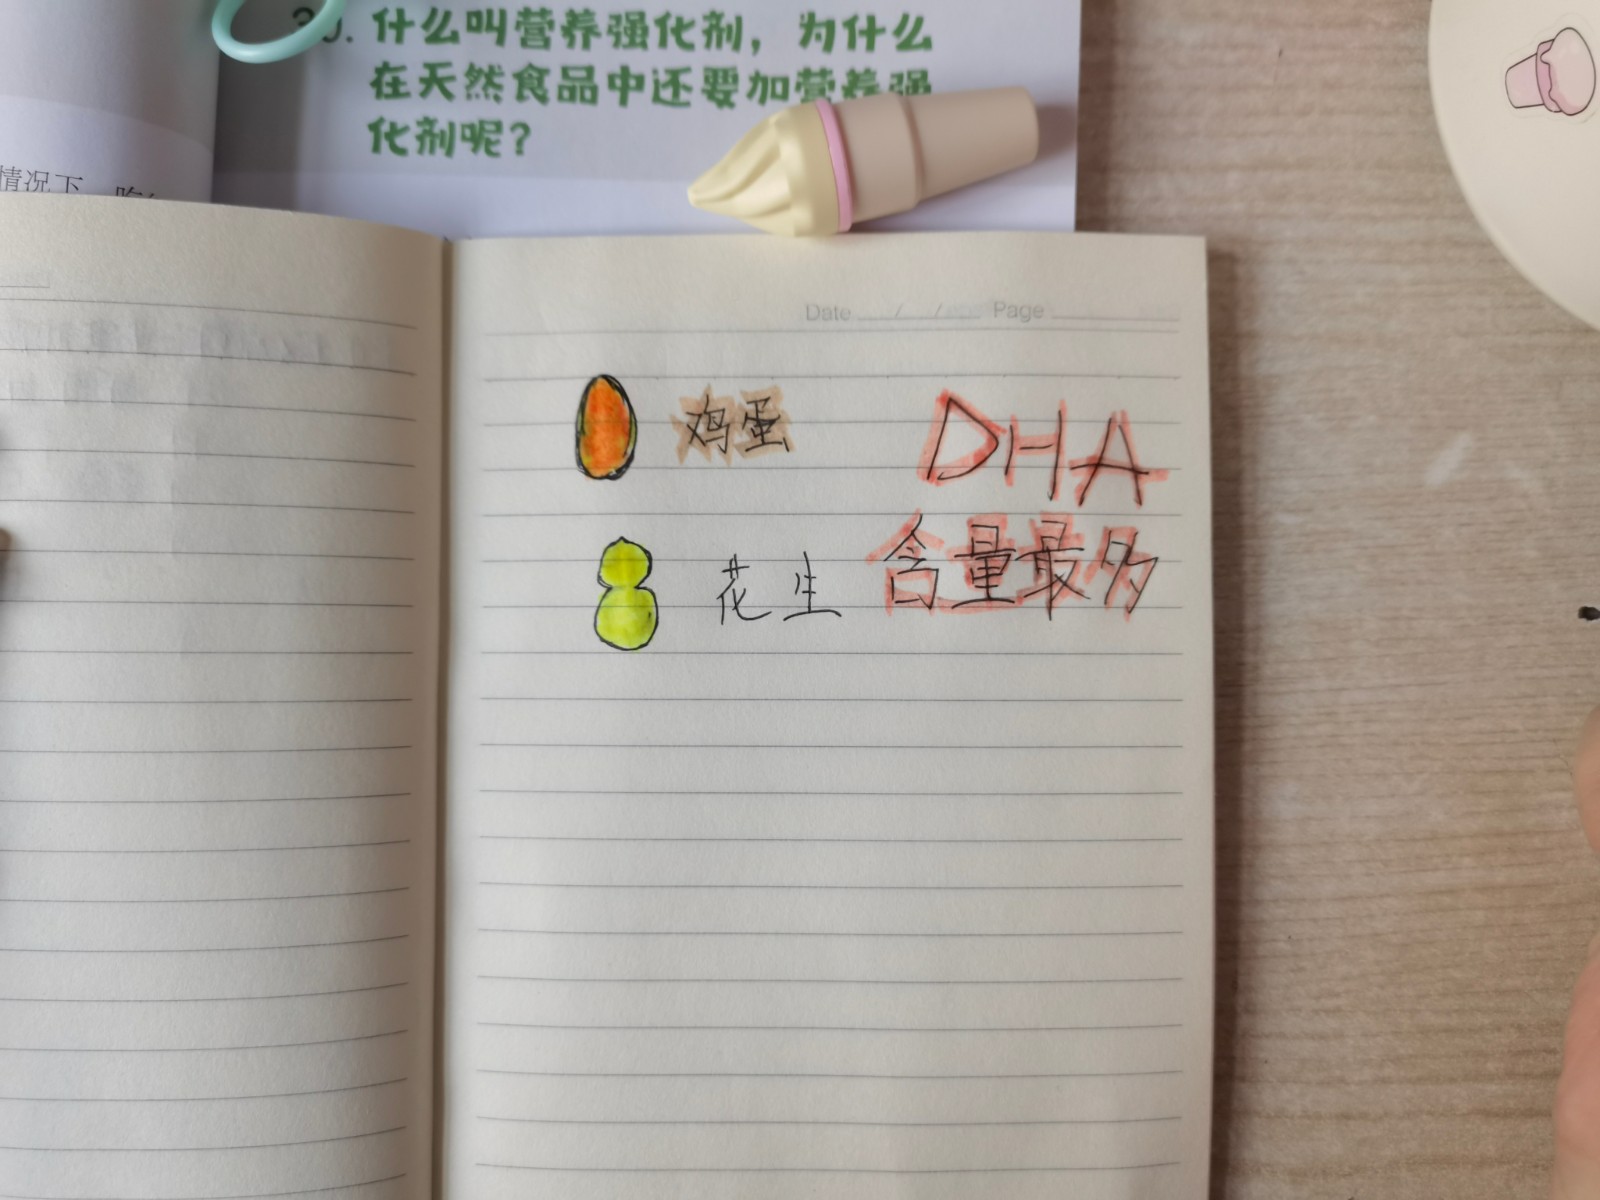 什么叫营养强化剂，为什么
在天然食品中还要加营养强
化剂呢？
情况下
Date / / Page
鸡蛋
DHA
花生
含量最多